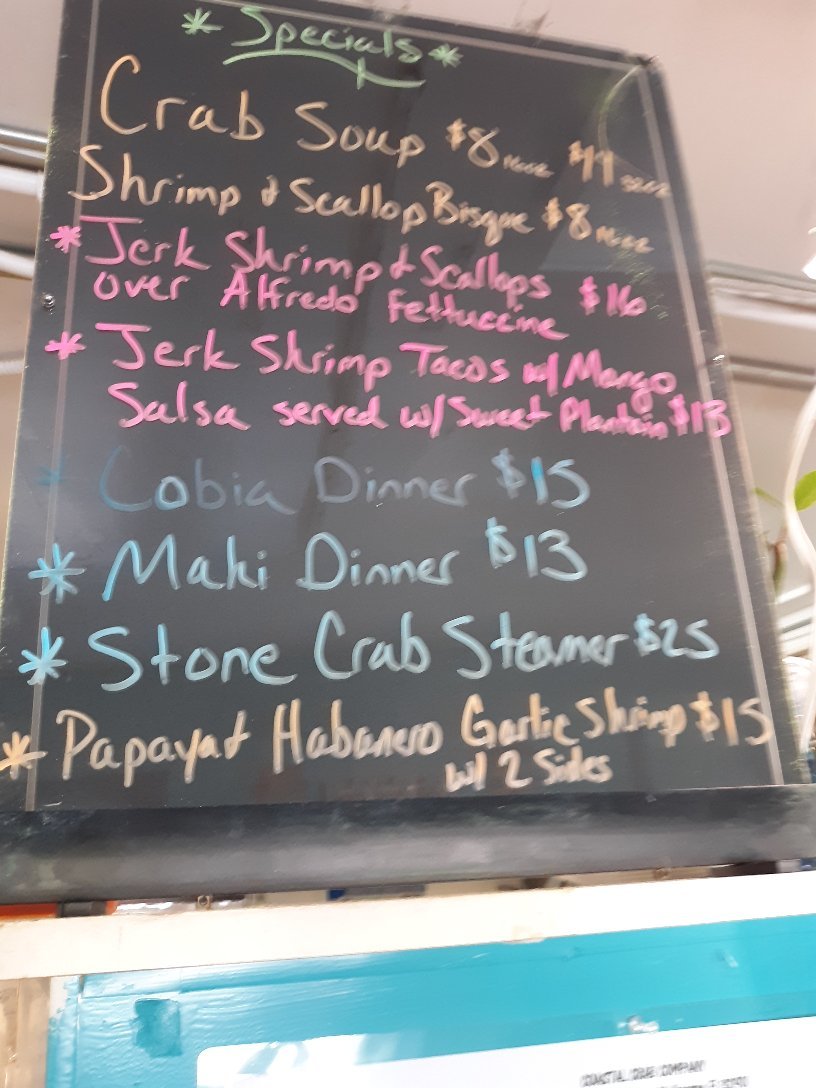 * Specials *
Crab Soup $8 $11
Shrimp & Scallop Bisque $8
* Jerk Shrimp & Scallops $16
over Alfredo Fettuccine
* Jerk Shrimp Tacos w/ Mango
Salsa served w/ Sweet Plantain $13
* Cobia Dinner $15
* Mahi Dinner $13
* Stone Crab Steamer $25
* Papaya & Habanero Garlic Shrimp $15
w/ 2 Sides
COASTAL CRAB COMPANY